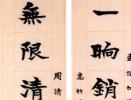 一晌銷
無限清
周清
高竹